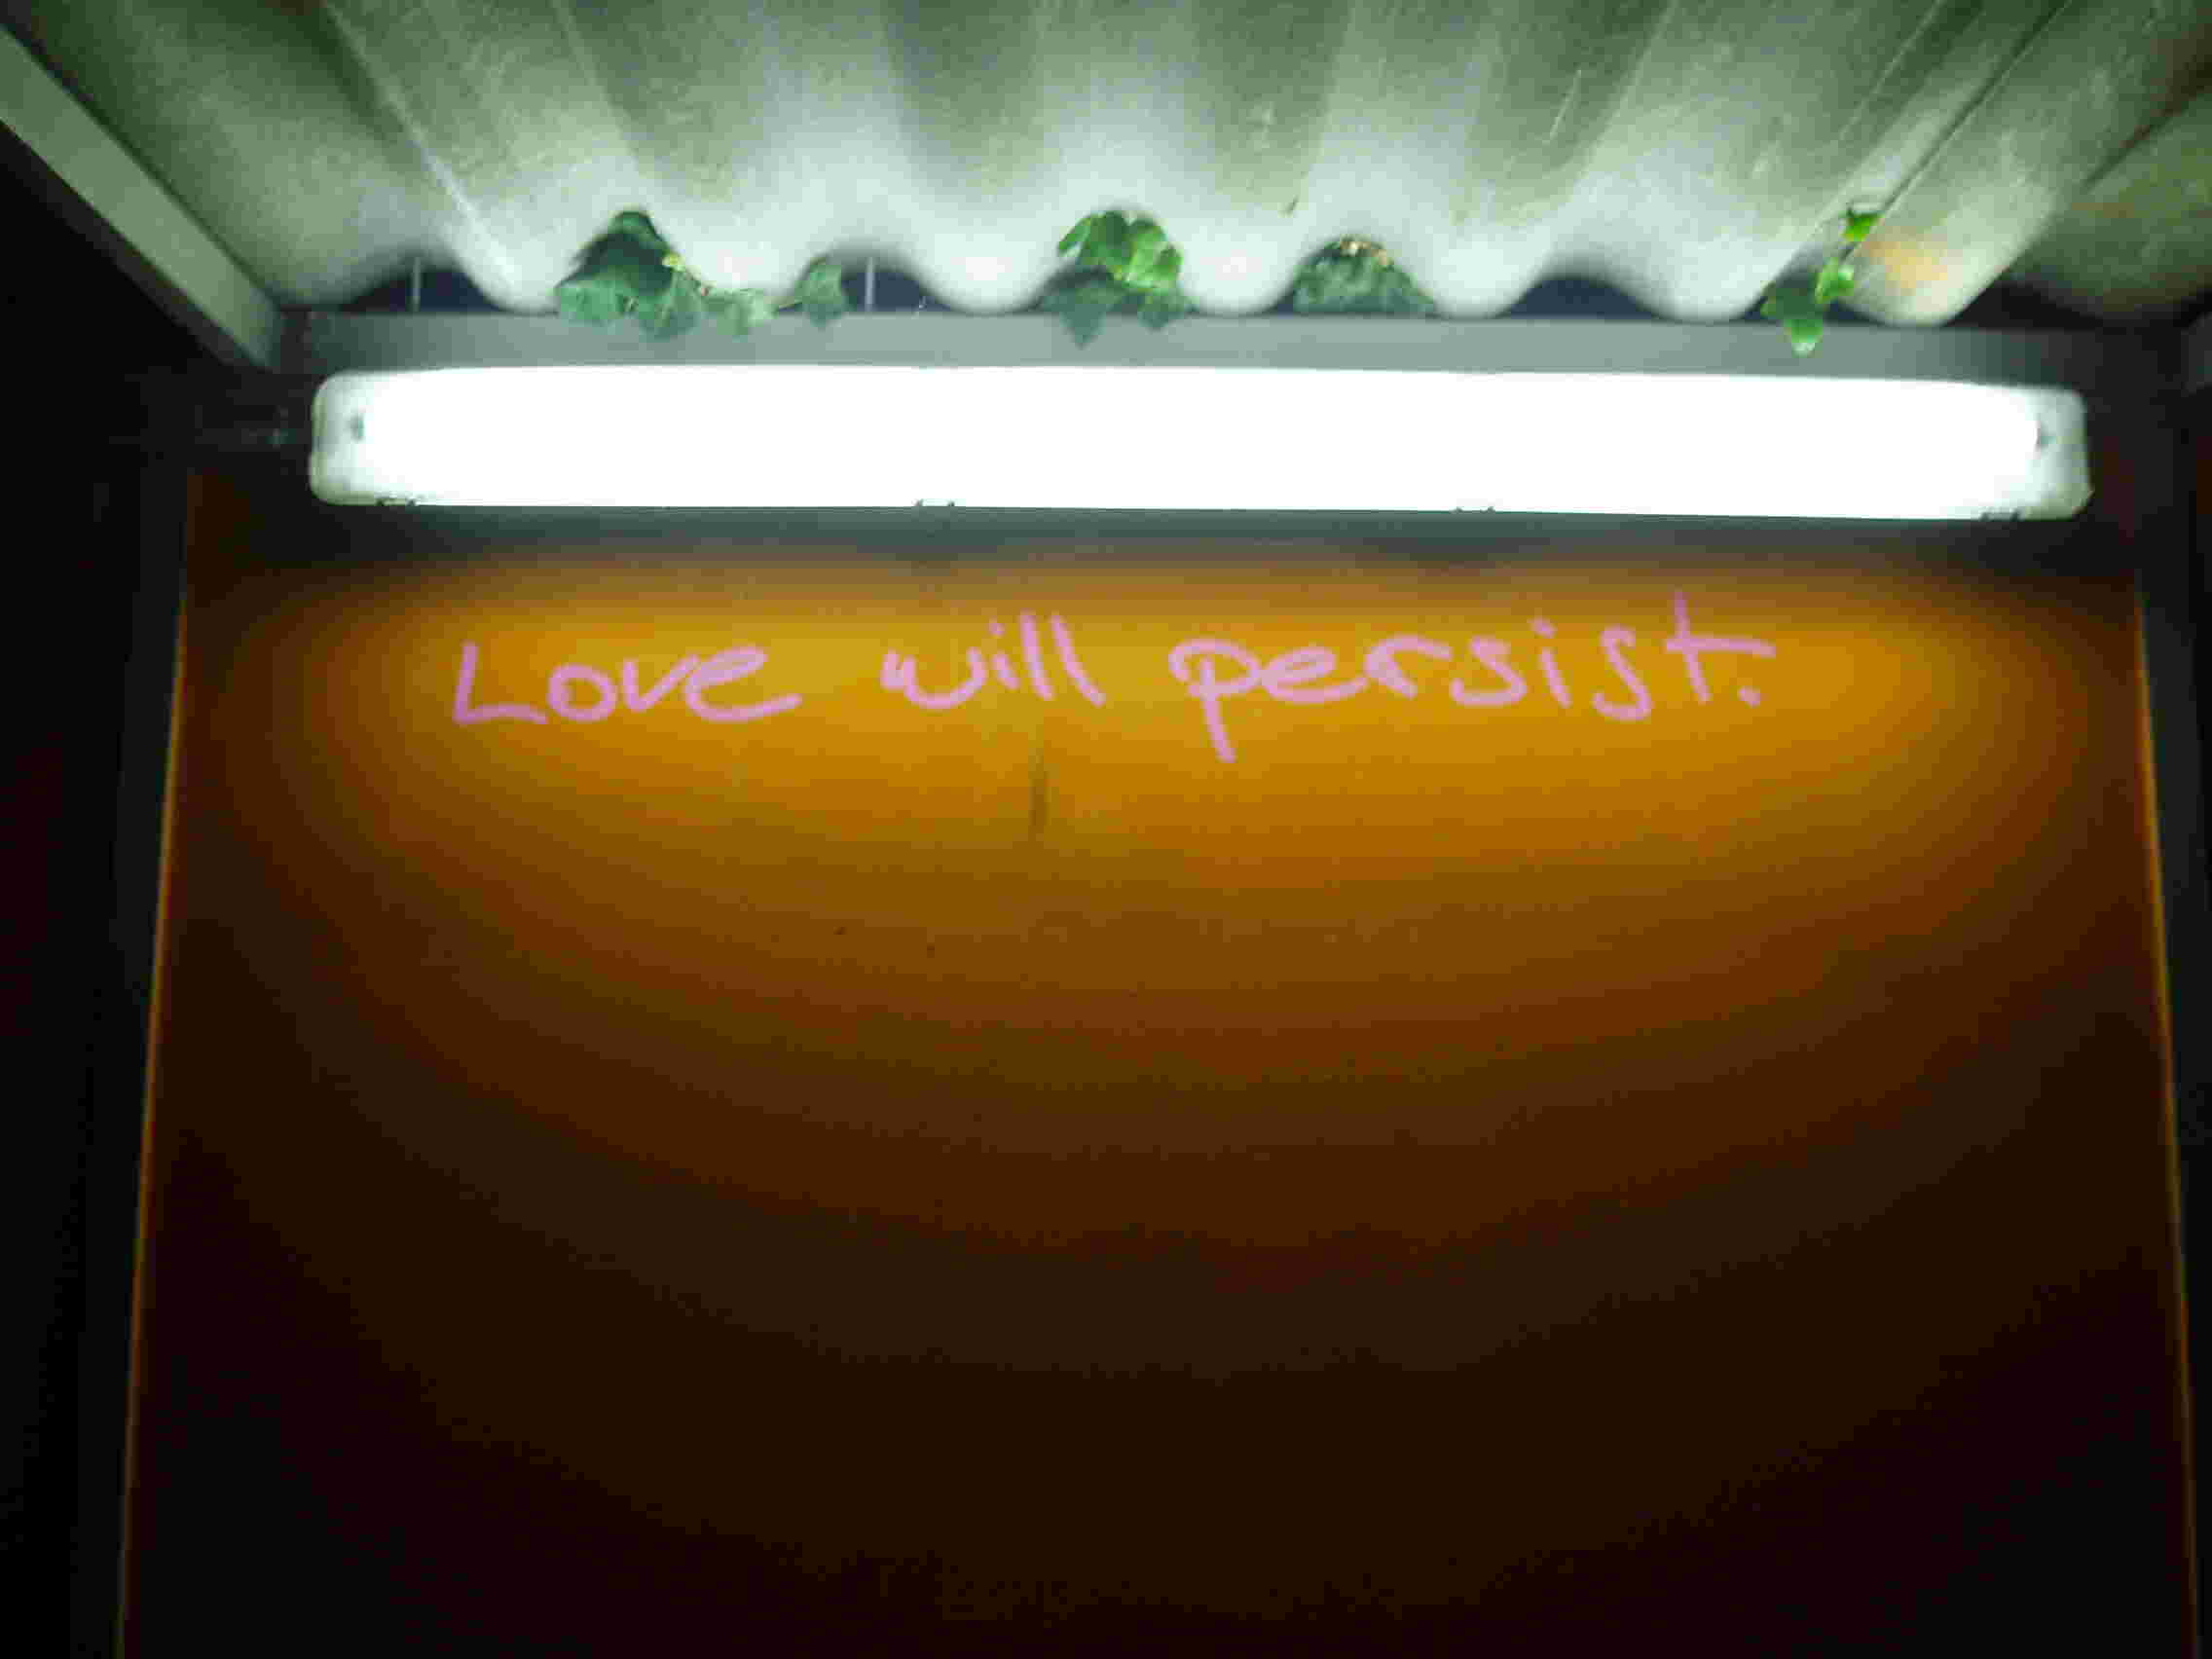 Love will persist.